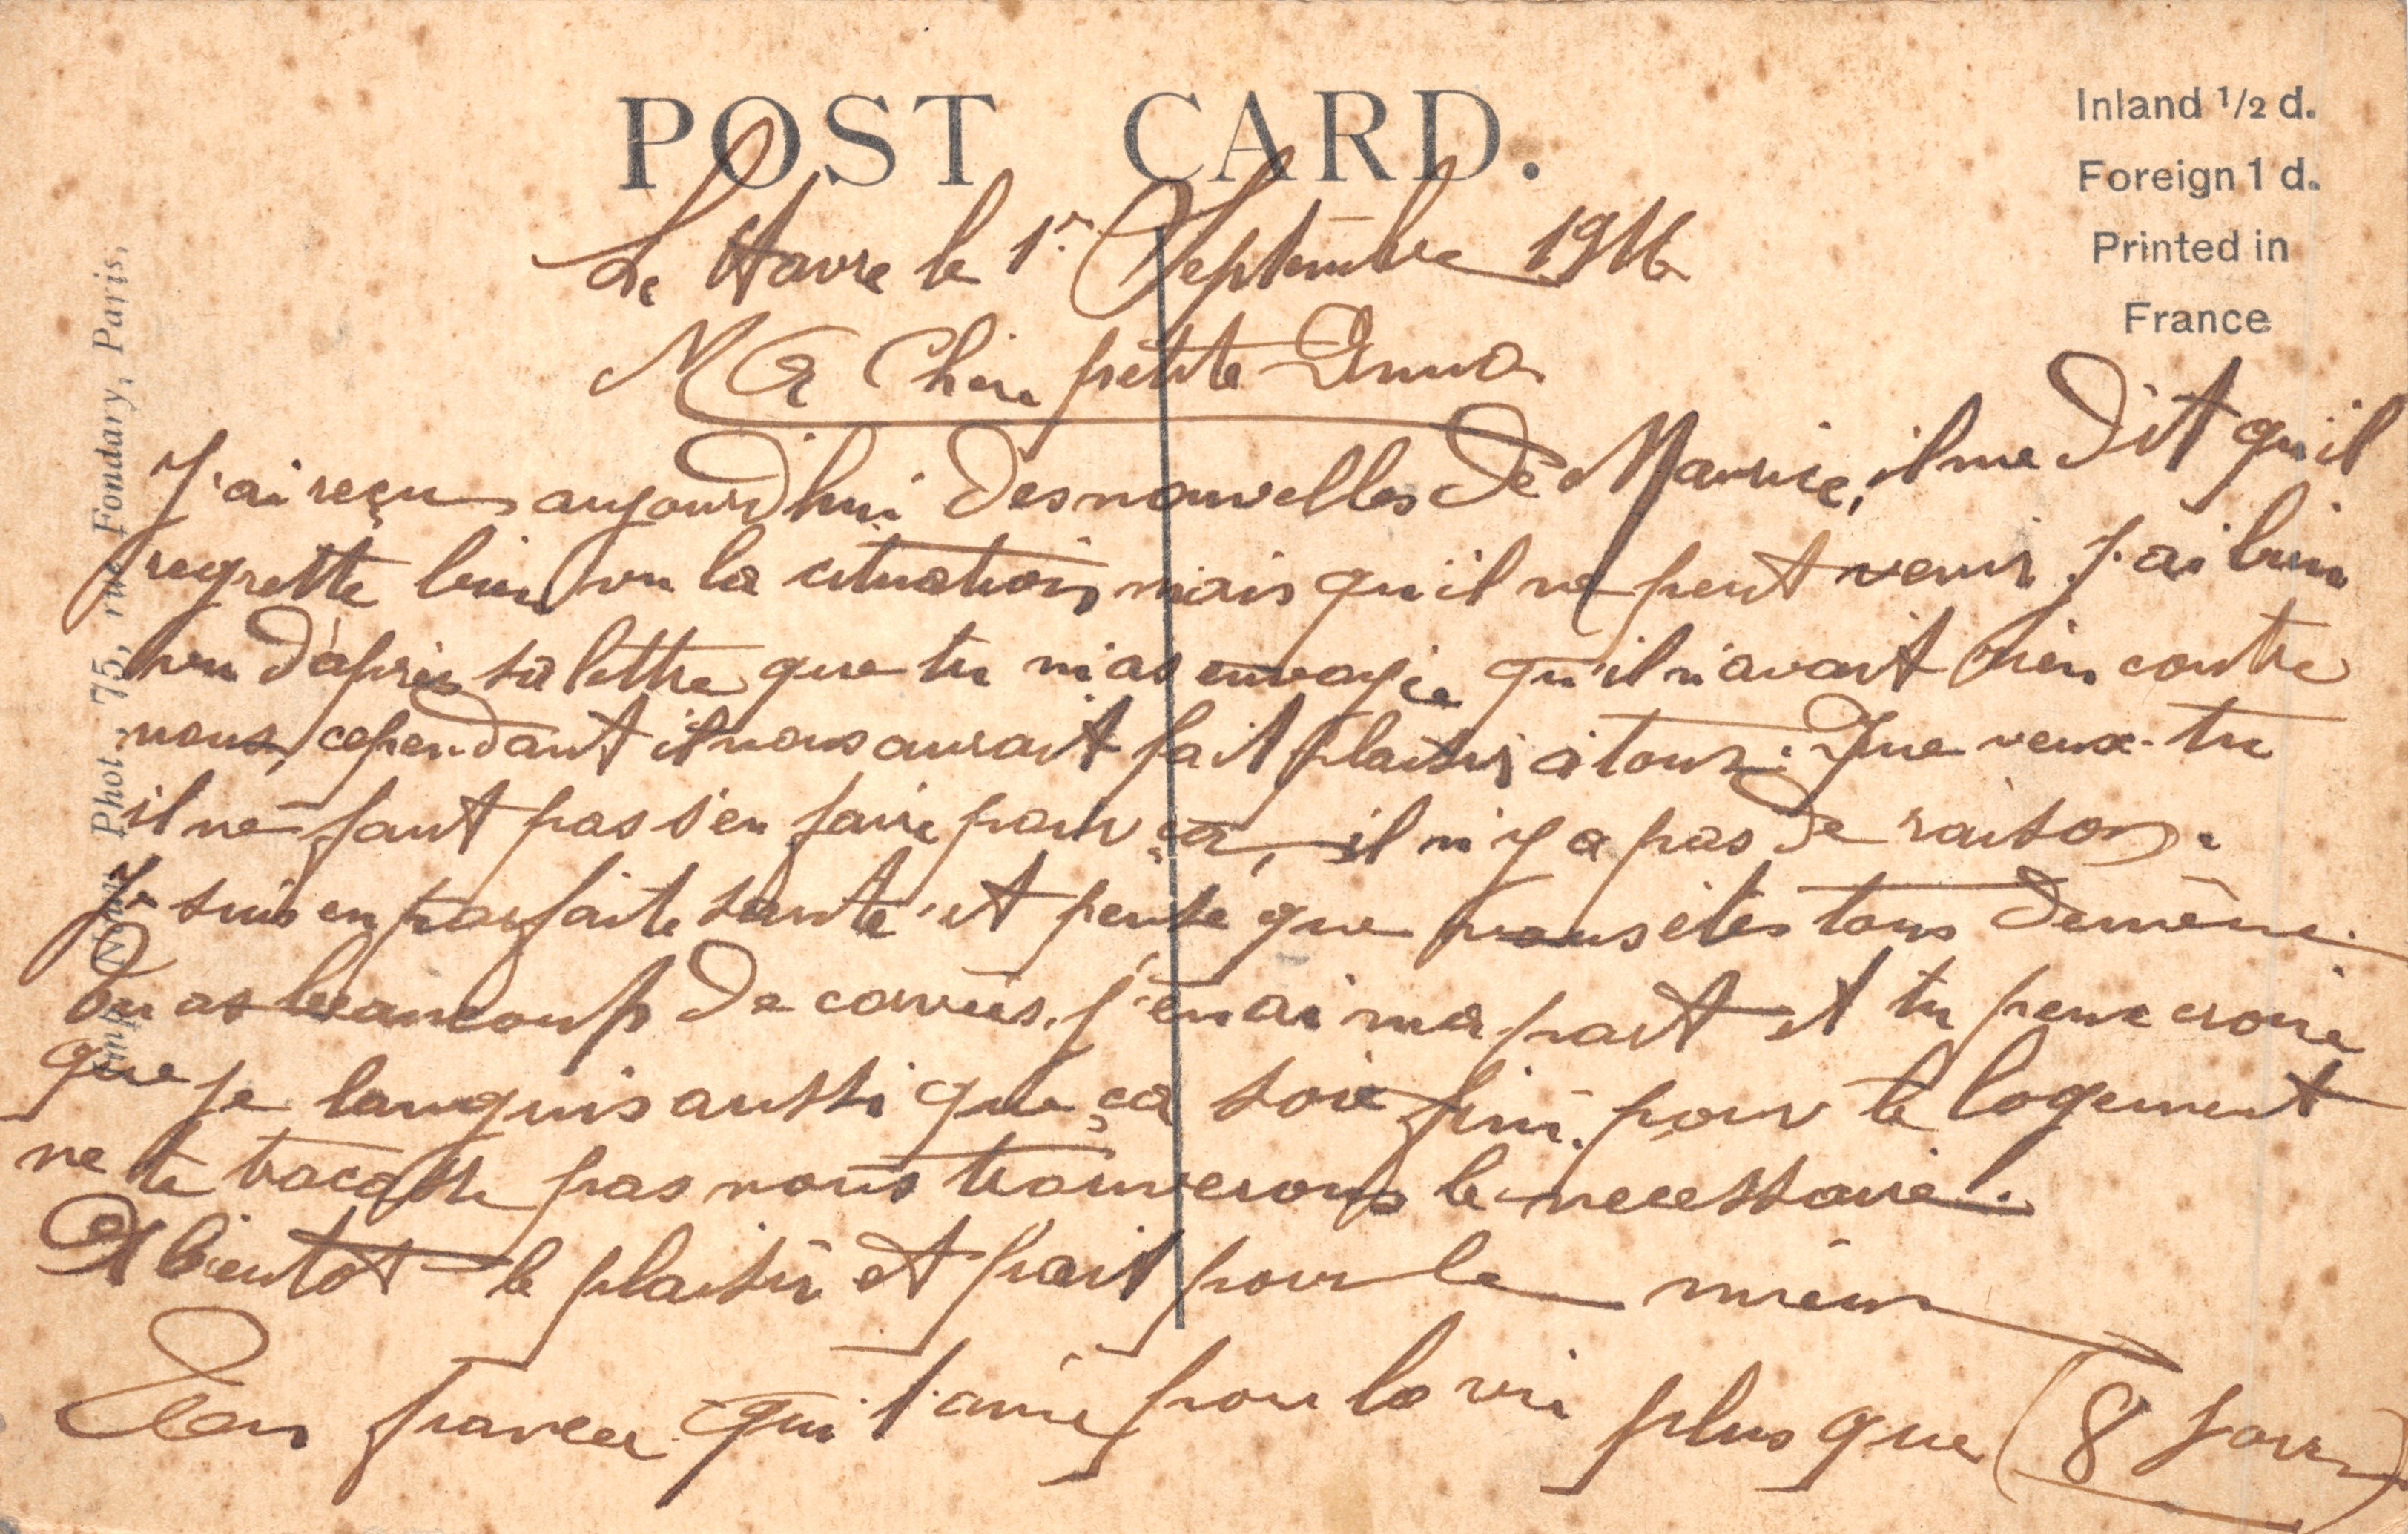 POST CARD.
Inland 1/2 d.
Foreign 1 d.
Printed in
France
Phot., 75, rue Fondary, Paris.
Le Havre le 1r Septembre 1916
Ma Chère petite Anna
J'ai reçu aujourd'hui des nouvelles de Maurice, il me dit qu'il
regrette bien vu la situation mais qu'il ne peut venir. J'ai bien
vu d'après sa lettre que tu m'as envoyée qu'il n'avait rien contre
nous, cependant il nous aurait fait plaisir à tous. Que veux-tu
il ne faut pas s'en faire pour ça, il n'y a pas de raison.
Je suis en parfaite santé et pense que vous êtes tous de même.
Tu as beaucoup de corvées, j'en ai ma part et tu peux croire
que je languis aussi que ça soie fini. pour le logement
ne te tracasse pas nous trouverons le necessaire.
A bientot le plaisir et pour le mieux
Ton qui t'aime pour la vie plus que (8 jours)